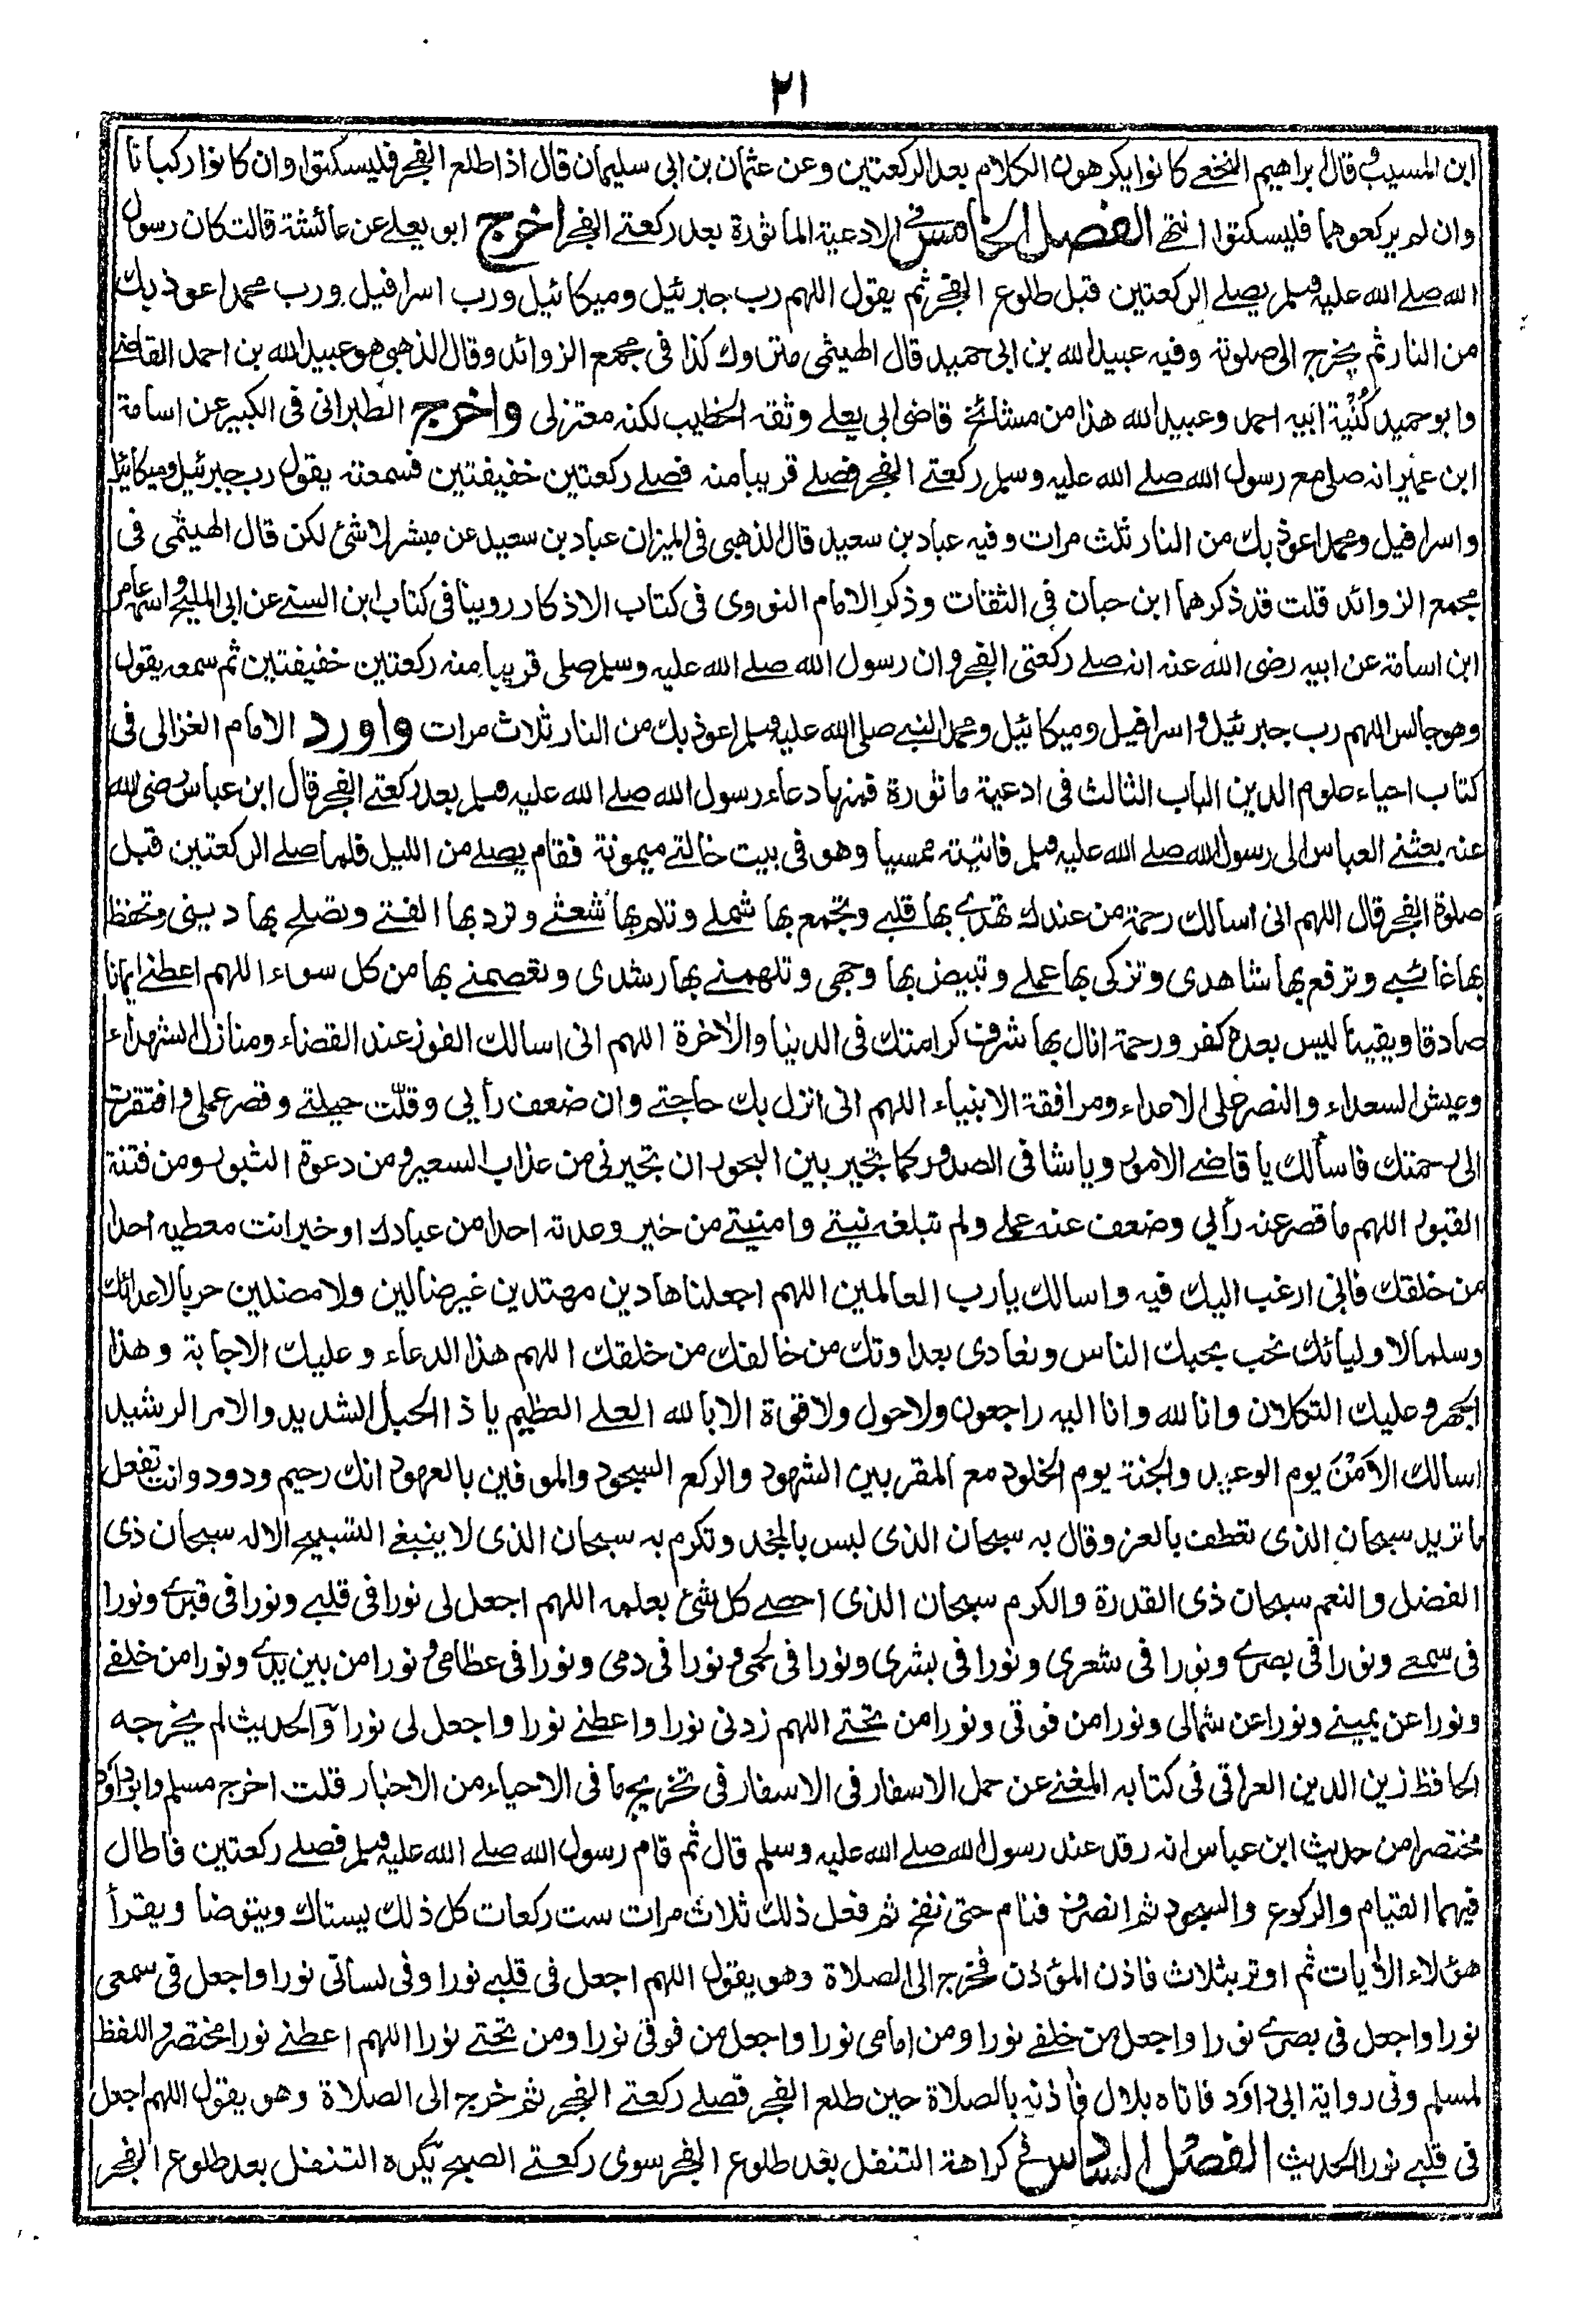 ٢١
ابن المسيب وقال ابراهيم النخعي كانوا يكرهون الكلام بعد الركعتين وعن عثمان بن ابي سليمان قال اذا طلع الفجر فليسكتوا وان كانوا ركبانا
وان لم يركعوهما فليسكتوا انتهى الفصل الخامس في الادعية الماثورة بعد ركعتي الفجر اخرج ابو يعلى عن عائشة قالت كان رسول
الله صلى الله عليه وسلم يصلي الركعتين قبل طلوع الفجر ثم يقول اللهم رب جبرئيل وميكائيل ورب اسرافيل ورب محمد اعوذ بك
من النار ثم يخرج الى صلوته وفيه عبيد الله بن ابي حميد قال الهيثمي متروك كذا في مجمع الزوائد وقال الذهبي هو عبيد الله بن احمد القاضي
وابو حميد كُنْيَة ابيه احمد وعبيد الله هذا من مشائخ قاضي ابي يعلى وثقه الخطيب لكنه معتزلي واخرج الطبراني في الكبير عن اسامة
ابن عمير انه صلى مع رسول الله صلى الله عليه وسلم ركعتي الفجر فصلى قريبا منه فصلى ركعتين خفيفتين فسمعته يقول رب جبرئيل وميكائيل
واسرافيل ومحمد اعوذ بك من النار ثلث مرات وفيه عباد بن سعيد قال الذهبي في الميزان عباد بن سعيد عن مبشر لا شئ لكن قال الهيثمي في
مجمع الزوائد قلت قد ذكرهما ابن حبان في الثقات وذكر الامام النووي في كتاب الاذكار روينا في كتاب ابن السني عن ابي المليح واسمه عامر
ابن اسامة عن ابيه رضى الله عنه انه صلى ركعتي الفجر وان رسول الله صلى الله عليه وسلم صلى قريبا منه ركعتين خفيفتين ثم سمعه يقول
وهو جالس اللهم رب جبرئيل واسرافيل وميكائيل ومحمد النبي صلى الله عليه وسلم اعوذ بك من النار ثلاث مرات واورد الامام الغزالي في
كتاب احياء علوم الدين الباب الثالث في ادعية ماثورة فمنها دعاء رسول الله صلى الله عليه وسلم بعد ركعتي الفجر قال ابن عباس رضى الله
عنه بعثني العباس الى رسول الله صلى الله عليه وسلم فاتيته ممسيا وهو في بيت خالتي ميمونة فقام يصلي من الليل فلما صلى الركعتين قبل
صلوة الفجر قال اللهم اني اسالك رحمة من عندك تهدي بها قلبي وتجمع بها شملي وتلم بها شعثي وترد بها الفتي وتصلح بها ديني وتحفظ
بها غائبي وترفع بها شاهدي وتزكي بها عملي وتبيض بها وجهي وتلهمني بها رشدي وتعصمني بها من كل سوء اللهم اعطني ايمانا
صادقا ويقينا ليس بعده كفر ورحمة انال بها شرف كرامتك في الدنيا والاخرة اللهم اني اسالك الفوز عند القضاء ومنازل الشهداء
وعيش السعداء والنصر على الاعداء ومرافقة الانبياء اللهم اني انزل بك حاجتي وان ضعف رأيي وقلّت حيلتي وقصر عملي وافتقرت
الى رحمتك فاسألك يا قاضي الامور ويا شافي الصدور كما تجير بين البحور ان تجيرني من عذاب السعير ومن دعوة الثبور ومن فتنة
القبور اللهم ما قصر عنه رأيي وضعف عنه عملي ولم تبلغه نيتي وامنيتي من خير وعدته احدا من عبادك او خير انت معطيه احدا
من خلقك فاني ارغب اليك فيه واسالك يا رب العالمين اللهم اجعلنا هادين مهتدين غير ضالين ولا مضلين حربا لاعدائك
وسلما لاوليائك نحب بحبك الناس ونعادي بعداوتك من خالفك من خلقك اللهم هذا الدعاء وعليك الاجابة وهذا
الجهر وعليك التكلان وانا لله وانا اليه راجعون ولا حول ولا قوة الا بالله العلي العظيم يا ذا الحبل الشديد والامر الرشيد
اسالك الاَمْنَ يوم الوعيد والجنة يوم الخلود مع المقربين الشهود والركع السجود والموفين بالعهود انك رحيم ودود وانت تفعل
ما تريد سبحان الذي تعطف بالعز وقال به سبحان الذي لبس بالمجد وتكرم به سبحان الذي لا ينبغي التسبيح الا له سبحان ذي
الفضل والنعم سبحان ذي القدرة والكرم سبحان الذي احصى كل شئ بعلمه اللهم اجعل لي نورا في قلبي ونورا في قبري ونورا
في سمعي ونورا في بصري ونورا في شعري ونورا في بشري ونورا في لحمي ونورا في دمي ونورا في عظامي ونورا من بين يدي ونورا من خلفي
ونورا عن يميني ونورا عن شمالي ونورا من فوقي ونورا من تحتي اللهم زدني نورا واعطني نورا واجعل لي نورا والحديث لم يخرجه
الحافظ زين الدين العراقي في كتابه المغني عن حمل الاسفار في الاسفار في تخريج ما في الاحياء من الاخبار قلت اخرج مسلم وابو داؤد
مختصرا من حديث ابن عباس انه رقد عند رسول الله صلى الله عليه وسلم قال ثم قام رسول الله صلى الله عليه وسلم فصلى ركعتين فاطال
فيهما القيام والركوع والسجود ثم انصرف فنام حتى نفخ ثم فعل ذلك ثلاث مرات ست ركعات كل ذلك يستاك ويتوضا ويقرأ
هؤلاء الاٰيات ثم اوتر بثلاث فاذن المؤذن فخرج الى الصلاة وهو يقول اللهم اجعل في قلبي نورا وفي لساني نورا واجعل في سمعي
نورا واجعل في بصري نورا واجعل من خلفي نورا ومن امامي نورا واجعل من فوقي نورا ومن تحتي نورا اللهم اعطني نورا مختصر واللفظ
لمسلم وفي رواية ابي داؤد فاتاه بلال فأذنه بالصلاة حين طلع الفجر فصلى ركعتي الفجر ثم خرج الى الصلاة وهو يقول اللهم اجعل
في قلبي نورا الحديث الفصل السادس في كراهة التنفل بعد طلوع الفجر سوى ركعتي الصبح يكره التنفل بعد طلوع الفجر